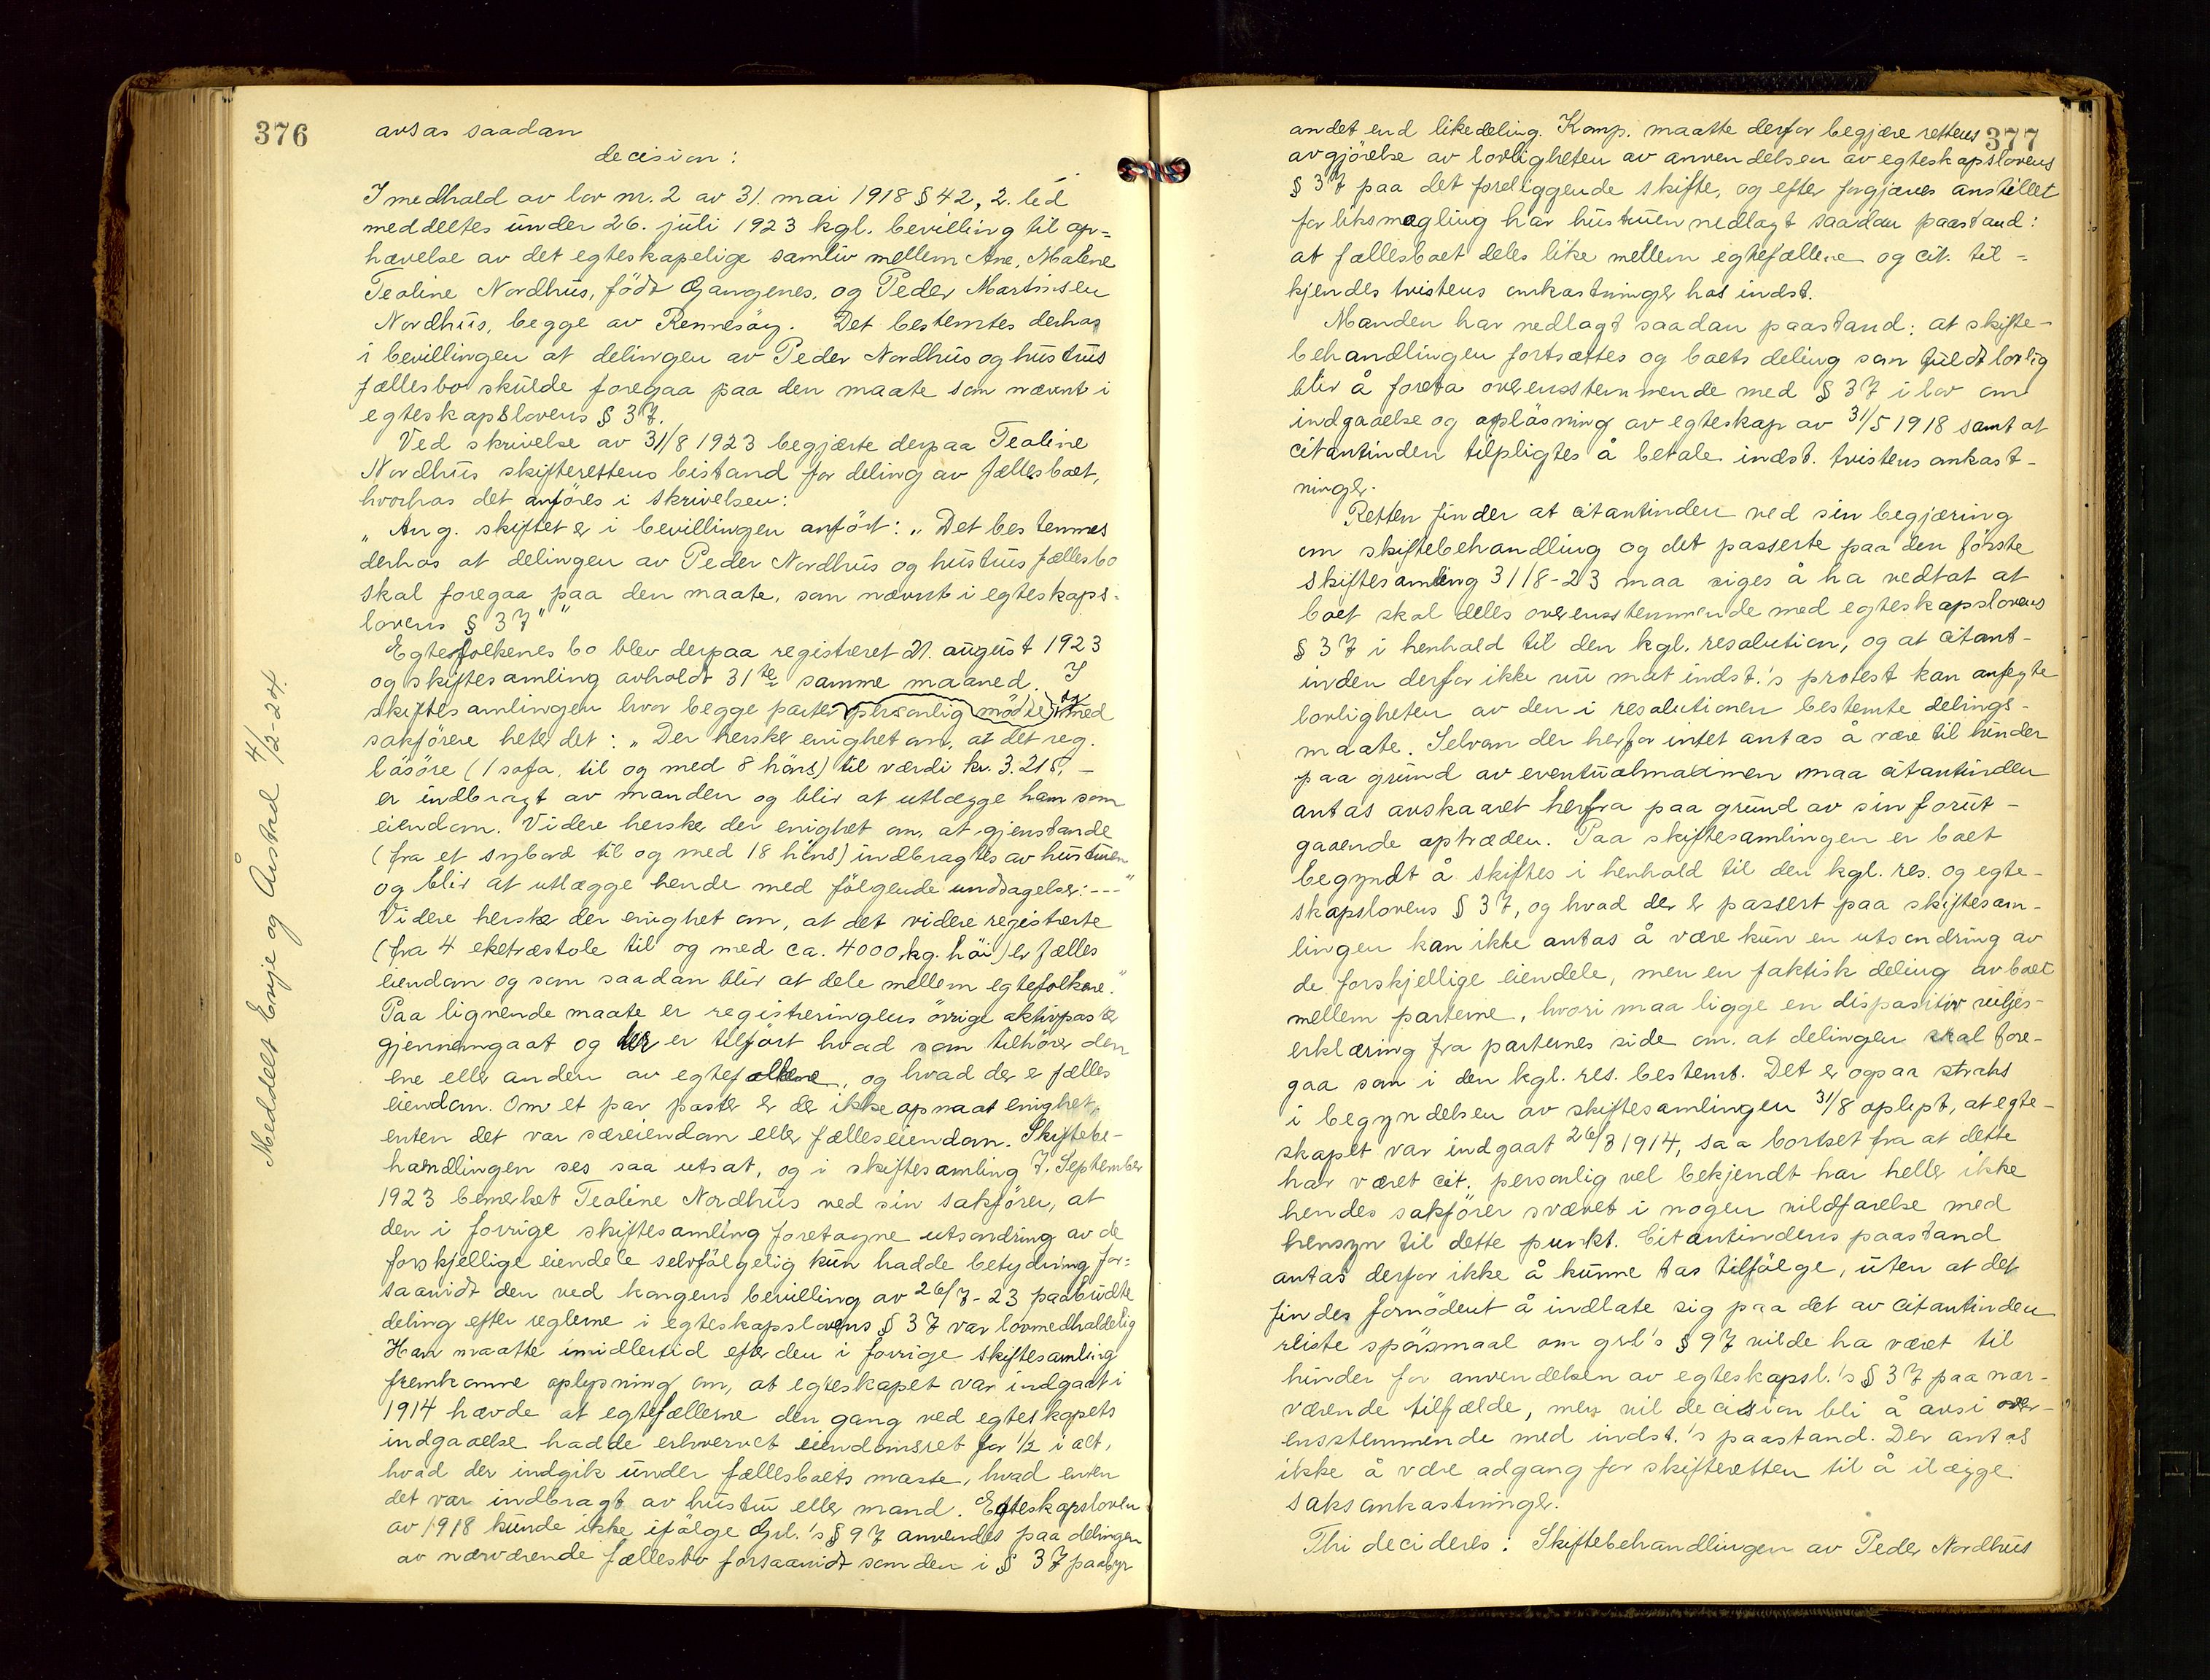 376
avsas saadan
decision:
I medhald av lov nr. 2 av 31. mai 1918 § 42, 2. led
meddeltes under 26. juli 1923 kgl. bevilling til op=
hævelse av det egteskapelige samliv mellem Ane, Malene
Teoline Nordhus, født Gangenes, og Peder Martinsen
Nordhus, begge av Rennesøy. Det bestemtes derhos
i bevillingen at delingen av Peder Nordhus og hustrus
fællesbo skulde foregaa paa den maate som nævnt i
egteskapslovens § 37.
Ved skrivelse av 31/8 1923 begjærte derpaa Teoline
Nordhus skifterettens bistand for deling av fællesboet,
hvorhos det anføres i skrivelsen:
„Ang. skiftet er i bevillingen anført: „Det bestemmes
derhos at delingen av Peder Nordhus og hustrus fællesbo
skal foregaa paa den maate, som nævnt i egteskaps-
lovens § 37" "
Egtefolkenes bo blev derpaa registreret 21. august 1923
og skiftesamling avholdt 31te samme maaned. I
skiftesamlingen hvor begge parter personlig mødte og med
sakførere heter det: „Der hersker enighet om, at det reg.
løsøre (1 sofa, til og med 8 høns) til værdi kr. 3.215,-
er indbragt av manden og blir at utlægge ham som
eiendom. Videre hersker der enighet om, at gjenstande
(fra et sybord til og med 18 høns) indbragtes av hustruen
og blir at utlægge hende med følgende undtagelser: ---"
Videre hersker der enighet om, at det videre registrerte
(fra 4 eketræstole til og med ca. 4000 kg. høi) er fælles
eiendom og som saadan blir at dele mellem egtefolkene."
Paa lignende maate er registreringens øvrige aktivposter
gjennemgaat og der er tilført hvad som tilhører den
ene eller anden av egtefællene, og hvad der er fælles
eiendom. Om et par poster er der ikke opnaat enighet,
enten det var særeiendom eller fælleseiendom. Skiftebe-
handlingen ses saa utsat, og i skiftesamling 7. September
1923 bemerket Teoline Nordhus ved sin sakfører, at
den i forrige skiftesamling foretagne utsondring av de
forskjellige eiendele selvfølgelig kun hadde betydning for-
saavidt den ved kongens bevilling av 26/7-23 paabudte
deling efter reglerne i egteskapslovens § 37 var lovmedholdelig
Han maatte imidlertid efter den i forrige skiftesamling
fremkomne oplysning om, at egteskapet var indgaat i
1914 hævde at egtefællerne den gang ved egteskapets
indgaaelse hadde erhvervet eiendomsret for 1/2 i alt,
hvad der indgik under fællesboets masse, hvad enten
det var indbragt av hustru eller mand. Egteskapsloven
av 1918 kunde ikke ifølge Grl.'s § 97 anvendes paa delingen
av nærværende fællesbo forsaavidt som den i § 37 paabyr
Meddelt Erge og Austad 4/2-24.
377
andet end likedeling. Komp. maatte derfor begjære rettens
avgjørelse av lovligheten av anvendelsen av egteskapslovens
§ 37 paa det foreliggende skifte, og efter forgjæves anstillet
forliksmegling har hustruen nedlagt saadan paastand:
at fællesboet deles like mellem egtefællene og cit. til-
kjendes tvistens omkastninger hos indst.
Manden har nedlagt saadan paastand: at skifte-
behandlingen fortsættes og boets deling som fuldt lovlig
blir å foreta overensstemmende med § 37 i lov om
indgaaelse og opløsning av egteskap av 31/5 1918 samt at
citantinden tilpligtes å betale indst. tvistens omkost-
ninger.
Retten finder at citantinden ved sin begjæring
om skiftebehandling og det passerte paa den første
skiftesamling 31/8-23 maa siges å ha vedtat at
boet skal deles overensstemmende med egteskapslovens
§ 37 i henhold til den kgl. resolution, og at citant-
inden derfor ikke nu mot indst.'s protest kan anfegte
lovligheten av den i resolutionen bestemte delings-
maate. Selvom der herfor intet antas å være til hinder
paa grund av eventualmaximen maa citantinden
antas avskaaret herfra paa grund av sin forut-
gaaende optræden. Paa skiftesamlingen er boet
begyndt å skiftes i henhold til den kgl. res. og egte-
skapslovens § 37, og hvad der er passert paa skiftesam-
lingen kan ikke antas å være kun en utsondring av
de forskjellige eiendele, men en faktisk deling av boet
mellem parterne, hvori maa ligge en dispositiv viljes-
erklæring fra parternes side om, at delingen skal fore-
gaa som i den kgl. res. bestemt. Det er ogsaa straks
i begyndelsen av skiftesamlingen 31/8 oplyst, at egte-
skapet var indgaat 26/3 1914, saa bortset fra at dette
har været cit. personlig vel bekjendt har heller ikke
hendes sakfører svævet i nogen vildfarelse med
hensyn til dette punkt. Citantindens paastand
antas derfor ikke å kunne tas tilfølge, uten at det
findes fornødent å indlate sig paa det av citantinden
reiste spørsmaal om grl's § 97 vilde ha været til
hinder for anvendelsen av egteskapsl.'s § 37 paa nær-
værende tilfælde, men vil decision bli å avsi over-
ensstemmende med indst.'s paastand. Der antas
ikke å være adgang for skifteretten til å ilægge
saksomkastninger.
Thi decideres: Skiftebehandlingen av Peder Nordhus